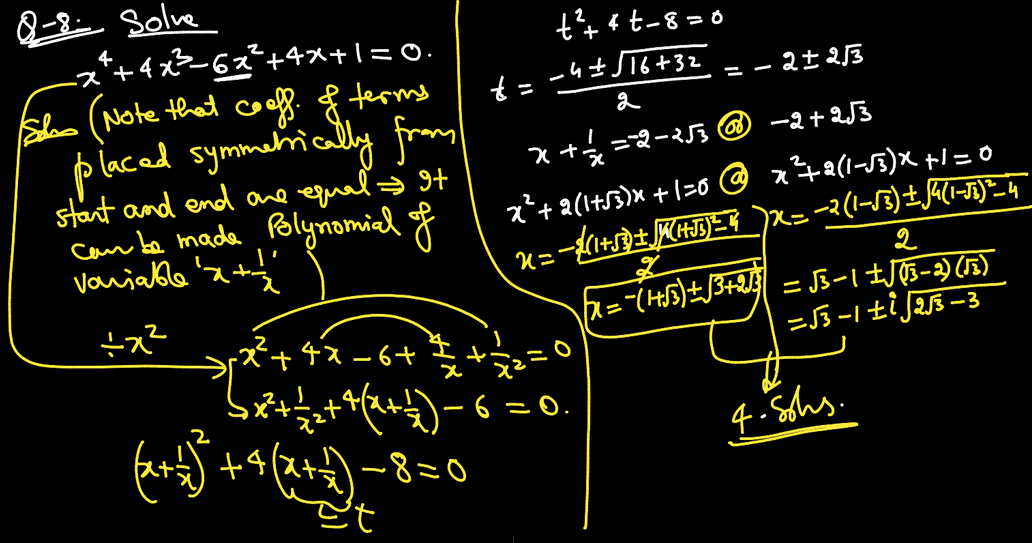 Q-8:- Solve
x⁴ + 4x³ - 6x² + 4x + 1 = 0.
Soln (Note that coeff. of terms
placed symmetrically from
start and end are equal ⇒ It
can be made Polynomial of
variable 'x + 1/x'
÷x²
x² + 4x - 6 + 4/x + 1/x² = 0
x² + 1/x² + 4(x + 1/x) - 6 = 0.
(x + 1/x)² + 4(x + 1/x) - 8 = 0
= t
t² + 4t - 8 = 0
t = (-4 ± √(16+32))/2 = -2 ± 2√3
x + 1/x = -2 - 2√3 or -2 + 2√3
x² + 2(1+√3)x + 1 = 0 or x² + 2(1-√3)x + 1 = 0
x = (-2(1+√3) ± √(4(1+√3)² - 4))/2
x = -(1+√3) ± √(3+2√3)
x = (-2(1-√3) ± √(4(1-√3)² - 4))/2
= √3 - 1 ± √((√3-2)(√3))
= √3 - 1 ± i√(2√3 - 3)
4. Solns.